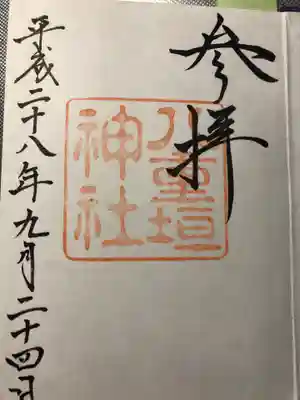 参拝
八重垣
神社
平成二十八年九月二十四日